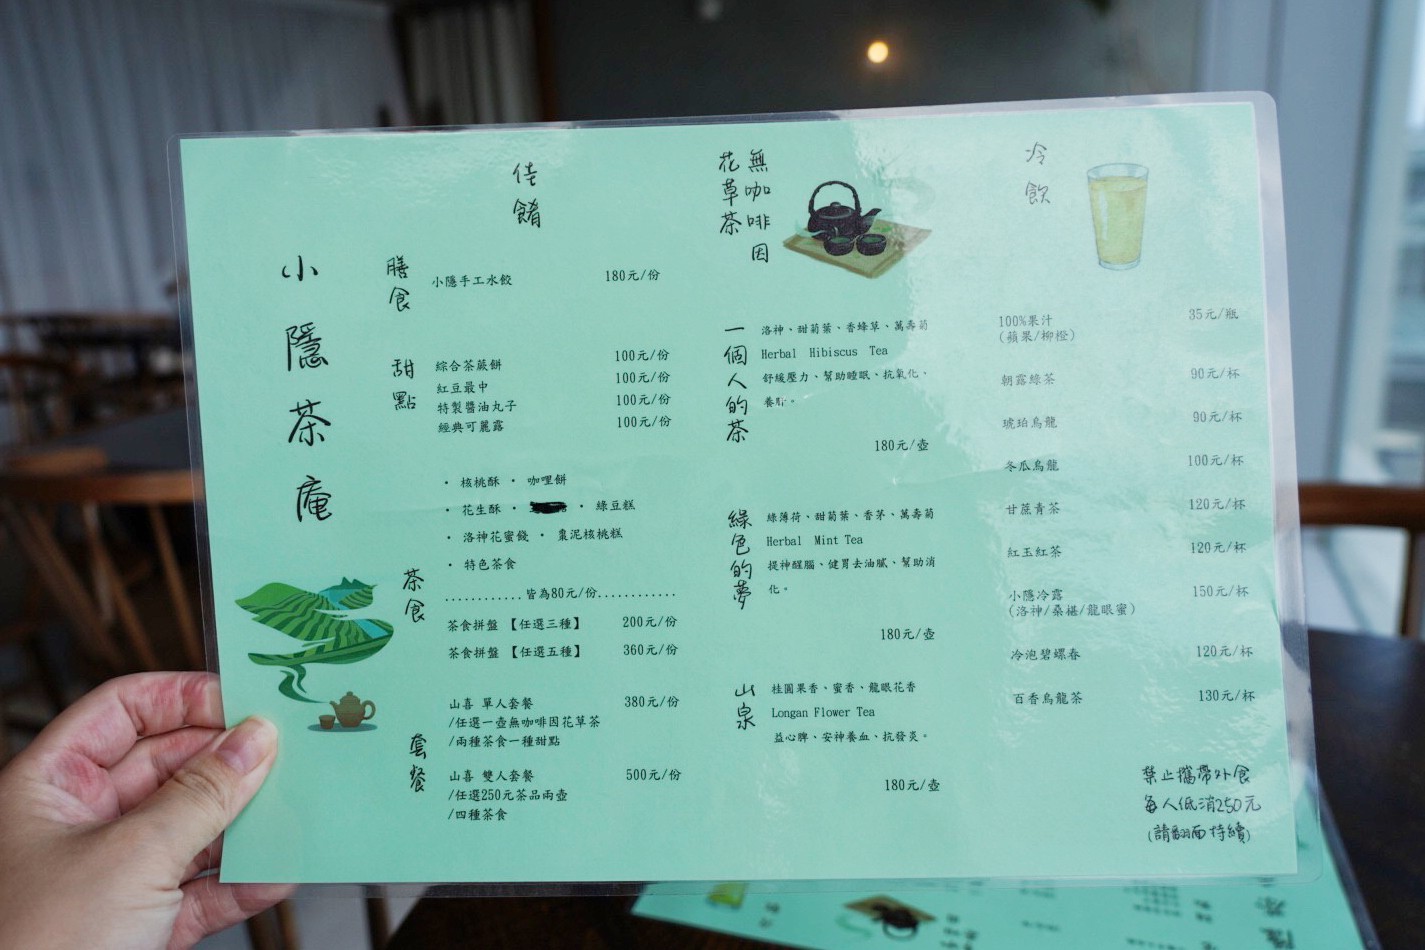 小隱茶庵
佳餚
膳食
小隱手工水餃 180元/份
甜點
綜合茶蕨餅 100元/份
紅豆最中 100元/份
特製醬油丸子 100元/份
經典可麗露 100元/份
茶食
· 核桃酥 · 咖哩餅
· 花生酥 · · 綠豆糕
· 洛神花蜜餞 · 棗泥核桃糕
· 特色茶食
............皆為80元/份............
茶食拼盤 【任選三種】 200元/份
茶食拼盤 【任選五種】 360元/份
套餐
山喜 單人套餐 380元/份
/任選一壺無咖啡因花草茶
/兩種茶食一種甜點
山喜 雙人套餐 500元/份
/任選250元茶品兩壺
/四種茶食
無咖啡因
花草茶
一個人的茶
洛神、甜菊葉、香蜂草、萬壽菊
Herbal Hibiscus Tea
舒緩壓力、幫助睡眠、抗氧化、
養顏。
180元/壺
綠色的夢
綠薄荷、甜菊葉、香茅、萬壽菊
Herbal Mint Tea
提神醒腦、健胃去油膩、幫助消
化。
180元/壺
山泉
桂圓果香、蜜香、龍眼花香
Longan Flower Tea
益心脾、安神養血、抗發炎。
180元/壺
冷飲
100%果汁 35元/瓶
(蘋果/柳橙)
朝露綠茶 90元/杯
琥珀烏龍 90元/杯
冬瓜烏龍 100元/杯
甘蔗青茶 120元/杯
紅玉紅茶 120元/杯
小隱冷露 150元/杯
(洛神/桑椹/龍眼蜜)
冷泡碧螺春 120元/杯
百香烏龍茶 130元/杯
禁止攜帶外食
每人低消250元
(請翻面持續)